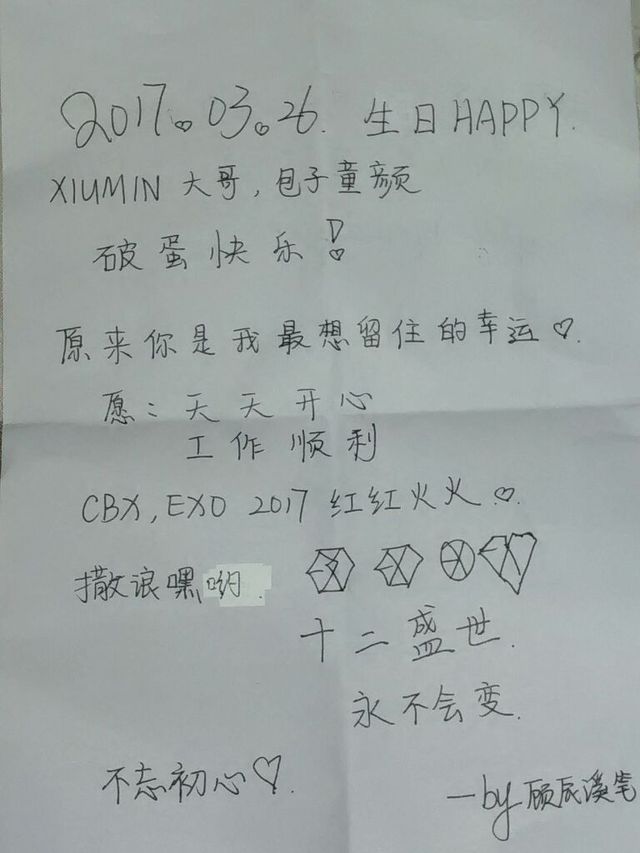 2017.03.26. 生日HAPPY.
XIUMIN 大哥,包子童颜
破蛋快乐!
原来你是我最想留住的幸运♡.
愿:天天开心
工作顺利
CBX,EXO 2017 红红火火♡
撒浪嘿哟.
十二盛世.
永不会变.
不忘初心♡.
—by顾辰溪笔